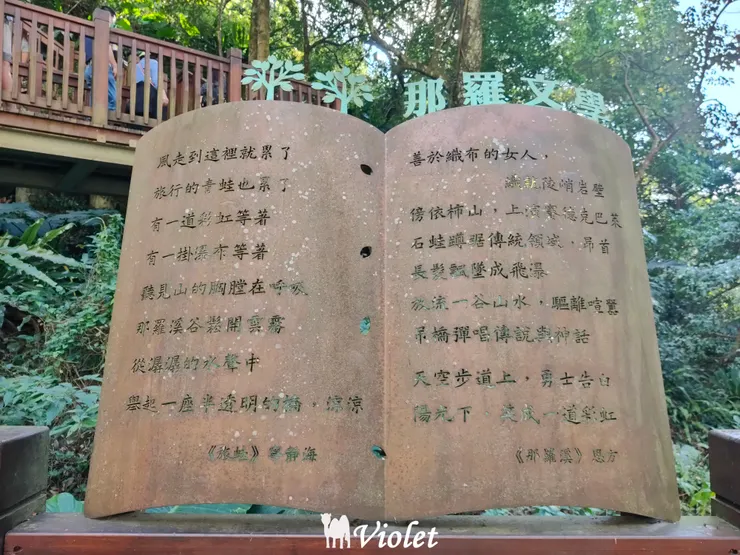 那羅文學
風走到這裡就累了
旅行的青蛙也累了
有一道彩虹等著
有一掛瀑布等著
聽見山的胸膛在呼吸
那羅溪谷鬆開雲霧
從潺潺的水聲中
舉起一座半透明的橋，涼涼
《旅蛙》 靜海
善於織布的女人，
陡峭岩壁
傍依柿山，上演賽德克巴萊
石蛙蹲踞傳統領域，昂首
長髮飄墜成飛瀑
放流一谷山水，驅離喧囂
吊橋彈唱傳說與神話
天空步道上，勇士告白
陽光下，變成一道彩虹
《那羅溪》 方
Violet